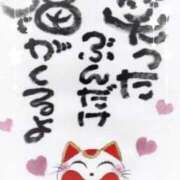 った
ぶんだけ
がくるよ